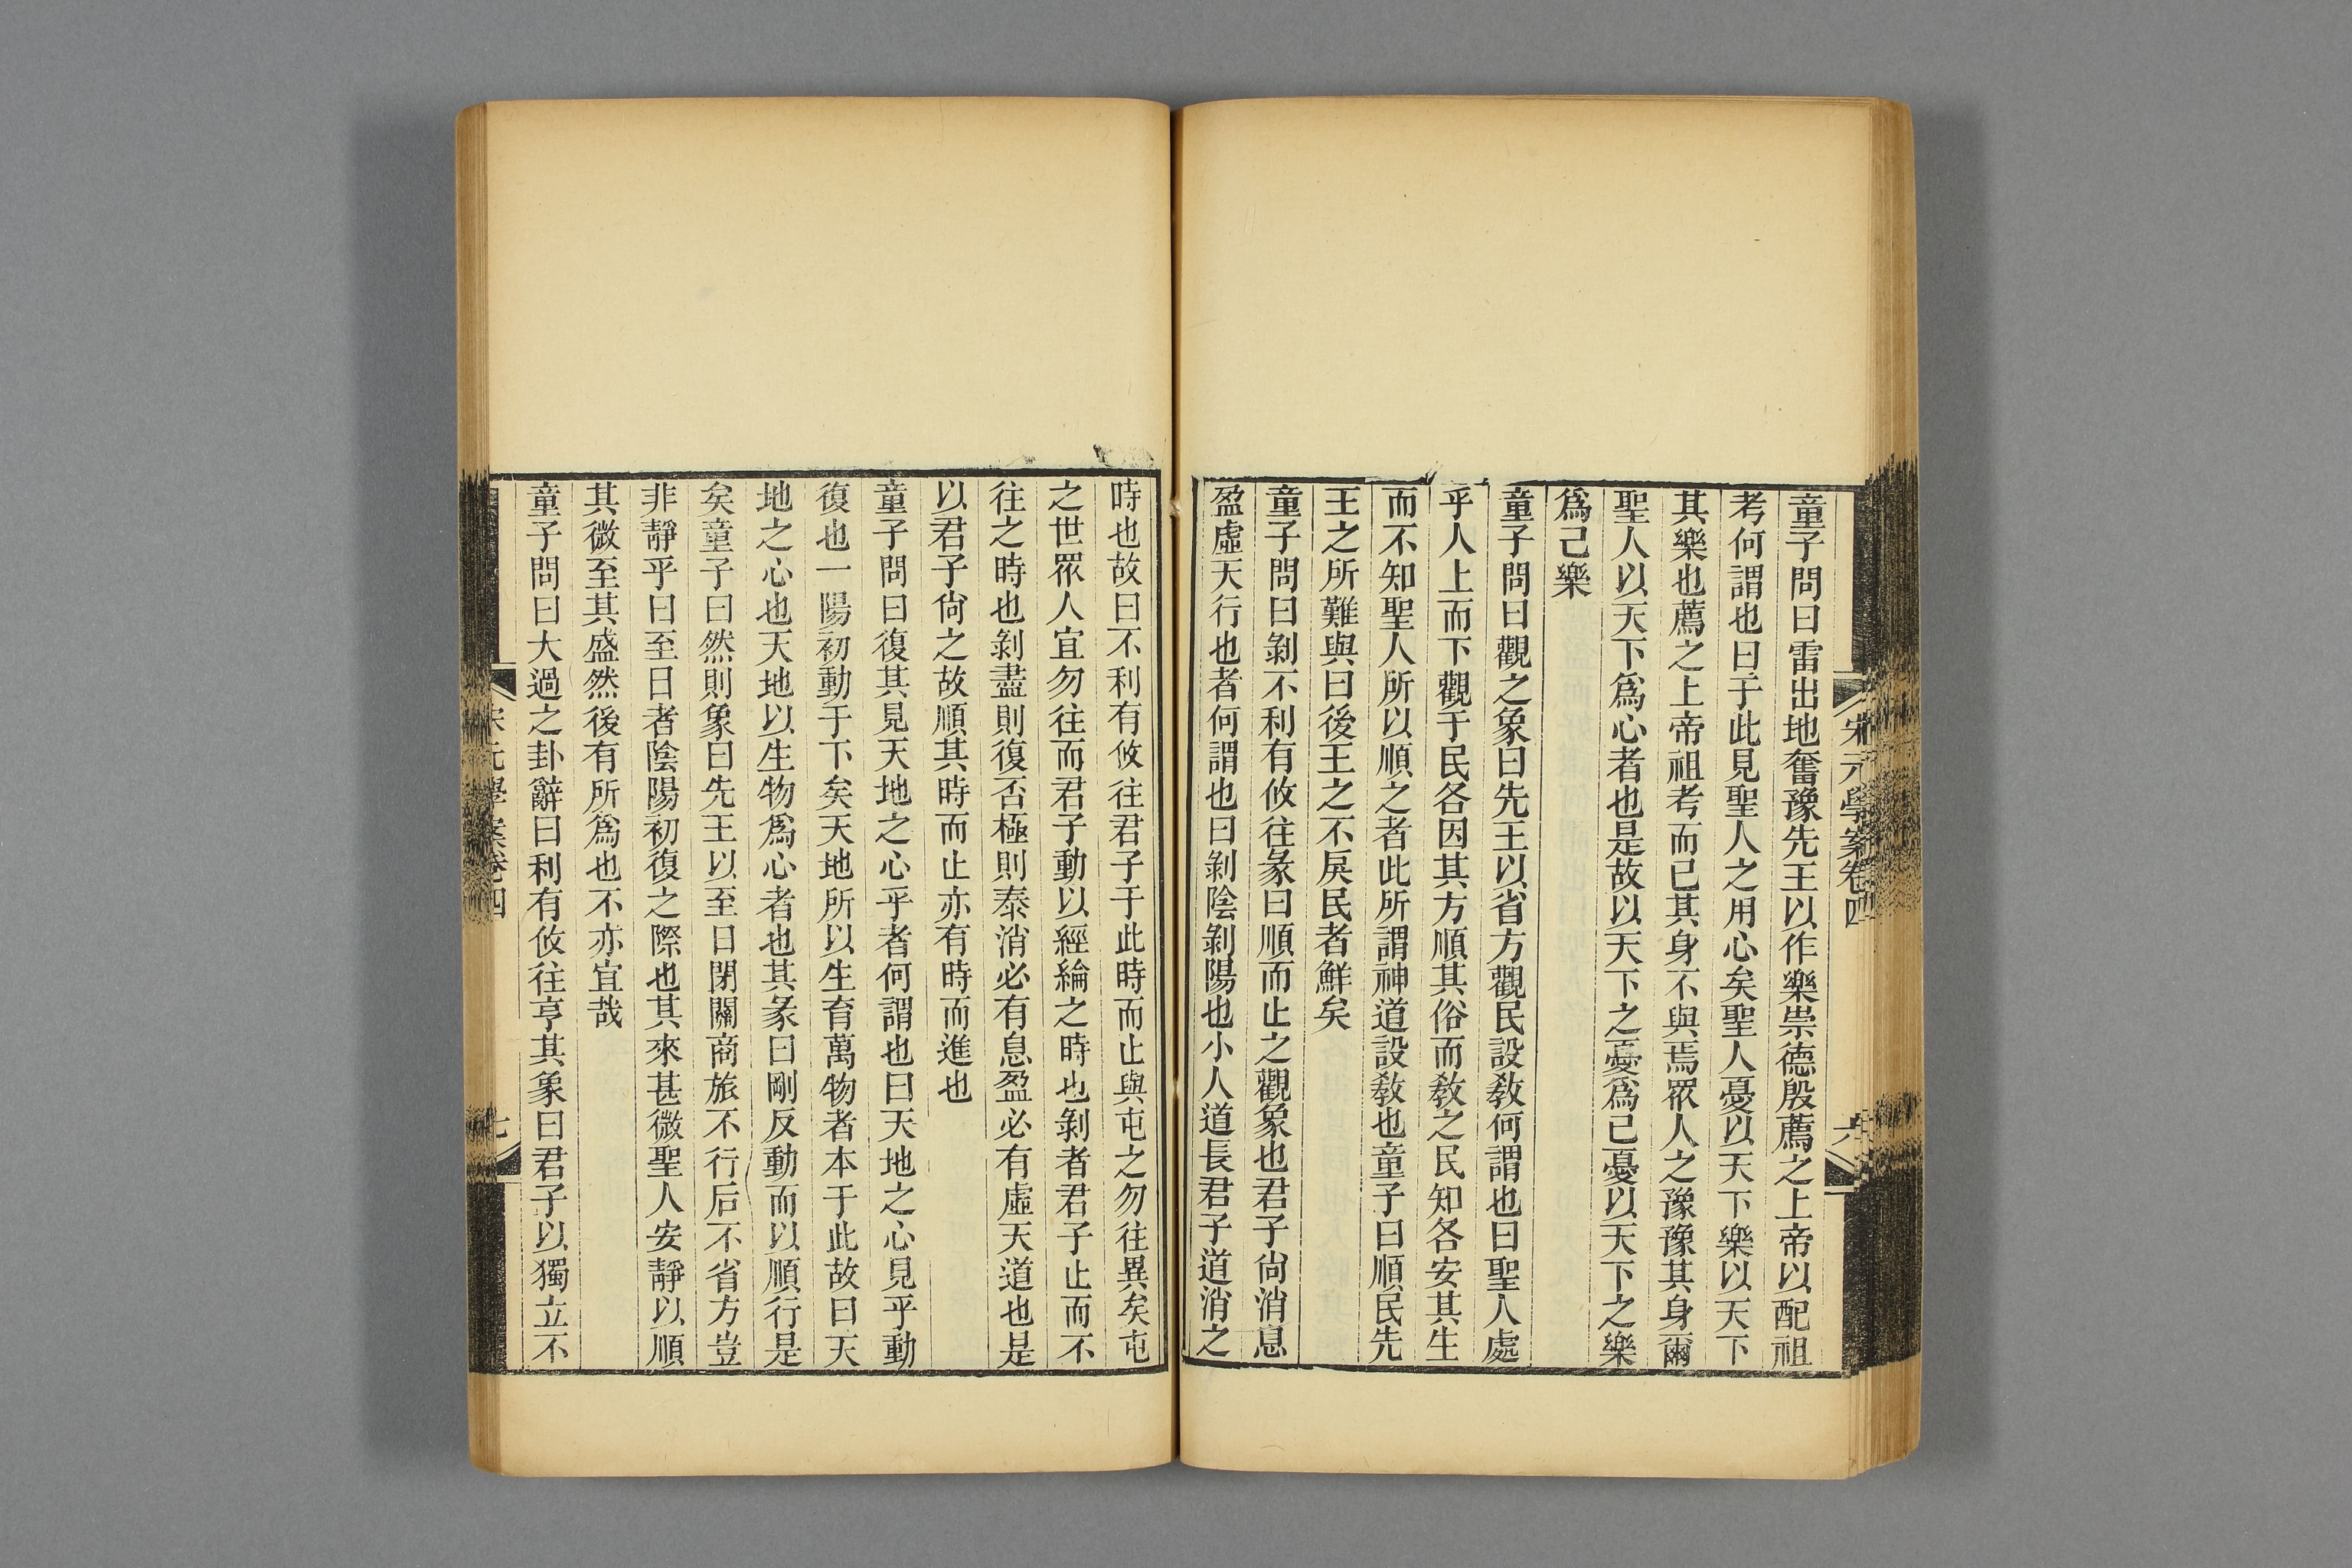 宋元學案卷四
六
童子問曰雷出地奮豫先王以作樂崇德殷薦之上帝以配祖
考何謂也曰于此見聖人之用心矣聖人憂以天下樂以天下
其樂也薦之上帝祖考而已其身不與焉眾人之豫豫其身爾
聖人以天下爲心者也是故以天下之憂爲己憂以天下之樂
爲己樂
童子問曰觀之象曰先王以省方觀民設敎何謂也曰聖人處
乎人上而下觀于民各因其方順其俗而敎之民知各安其生
而不知聖人所以順之者此所謂神道設敎也童子曰順民先
王之所難與曰後王之不戾民者鮮矣
童子問曰剝不利有攸往彖曰順而止之觀象也君子尙消息
盈虛天行也者何謂也曰剝陰剝陽也小人道長君子道消之
時也故曰不利有攸往君子于此時而止與屯之勿往異矣屯
之世眾人宜勿往而君子動以經綸之時也剝者君子止而不
往之時也剝盡則復否極則泰消必有息盈必有虛天道也是
以君子尙之故順其時而止亦有時而進也
童子問曰復其見天地之心乎者何謂也曰天地之心見乎動
復也一陽初動于下矣天地所以生育萬物者本于此故曰天
地之心也天地以生物爲心者也其彖曰剛反動而以順行是
矣童子曰然則象曰先王以至日閉關商旅不行后不省方豈
非靜乎曰至日者陰陽初復之際也其來甚微聖人安靜以順
其微至其盛然後有所爲也不亦宜哉
童子問曰大過之卦辭曰利有攸往亨其象曰君子以獨立不
宋元學案卷四
七